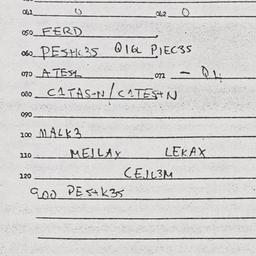 041 0 042 0
050 FERD
060 PESHC35 Q1GL PIEC35
070 ATESL 072 — Q4
080 C1TAS-N/C1TES+N
090
100 MALK3
110 MEILAY LEKAX
120 CEJL3M
900 PESHK35